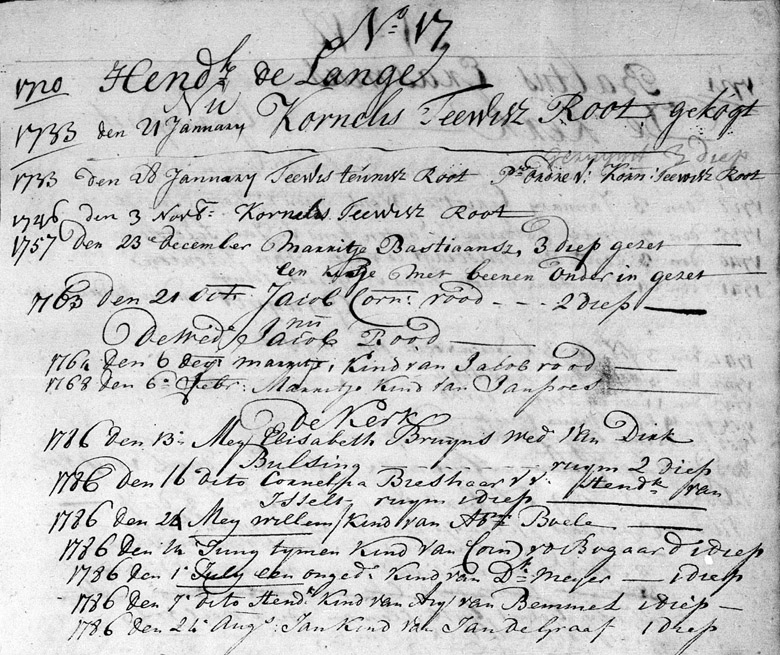 No 17
1720 Hendk de Lange
Nu
1733 den 21 January Kornelis Teewisz Root gekogt
3 diep
1733 den 28 January Teewis teunisz Root Korn: Teewisz Root
1746 den 3 Novbr: Kornelis Teewisz Root
1757 den 23e december Marritje Bastiaansz, 3 diep gezet
Een kisje met beenen onder in gezet
1763 den 21 octr: Jacob Corn: rood - - - 2 diep
nu
De Wede Jacob Rood
1764 den 6 decr: marritje, Kind van Jacob rood
1768 den 6e Febr: Marritje Kind van Jan
De Kerk
1786 den 13e Mey Elisabeth Bruyns wed van Dirk
Bulsing - - - - - - ruym 2 diep
1786 den 16 dito Cornelia Bestiaar v: v: Hendk van
Isselt - ruym 1 diep
1786 den 24 Mey willem Kind van Abr Boele
1786 den Juny tymen Kind van Coin vd Bogaard 1 diep
1786 den 1e July een onged: Kind van Dk Meyer - 1 diep
1786 den 7e dito Hendk Kind van Ary van Bemmel 1 diep -
1786 den 24 Augs: Jan Kind van Jan de Graaf 1 diep